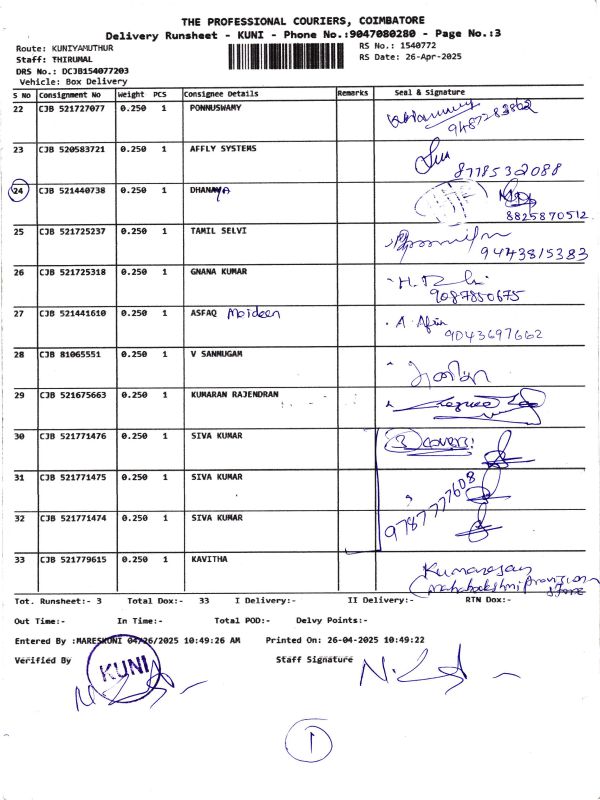 THE PROFESSIONAL COURIERS, COIMBATORE
Delivery Runsheet - KUNI - Phone No.:9047080280 - Page No.:3
Route: KUNIYAMUTHUR RS No.: 1540772
Staff: THIRUMAL RS Date: 26-Apr-2025
DRS No.: DCJB154077203
Vehicle: Box Delivery
S No Consignment No Weight PCS Consignee Details Remarks Seal & Signature
22 CJB 521727077 0.250 1 PONNUSWAMY
9487283862
23 CJB 520583721 0.250 1 AFFLY SYSTEMS
8778532088
24 CJB 521440738 0.250 1 DHANAYA
8825870512
25 CJB 521725237 0.250 1 TAMIL SELVI
9443815383
26 CJB 521725318 0.250 1 GNANA KUMAR
9087850675
27 CJB 521441610 0.250 1 ASFAQ Moideen A. Afrin
9043697662
28 CJB 81065551 0.250 1 V SANMUGAM
29 CJB 521675663 0.250 1 KUMARAN RAJENDRAN
30 CJB 521771476 0.250 1 SIVA KUMAR 3 covers!
31 CJB 521771475 0.250 1 SIVA KUMAR
9787777608
32 CJB 521771474 0.250 1 SIVA KUMAR
33 CJB 521779615 0.250 1 KAVITHA Kumaresan
Mahalakshmi provision
store
Tot. Runsheet:- 3 Total Dox:- 33 I Delivery:- II Delivery:- RTN Dox:-
Out Time:- In Time:- Total POD:- Delvy Points:-
Entered By :MARESKUNI 04/26/2025 10:49:26 AM Printed On: 26-04-2025 10:49:22
Verified By Staff Signature
KUNI
1